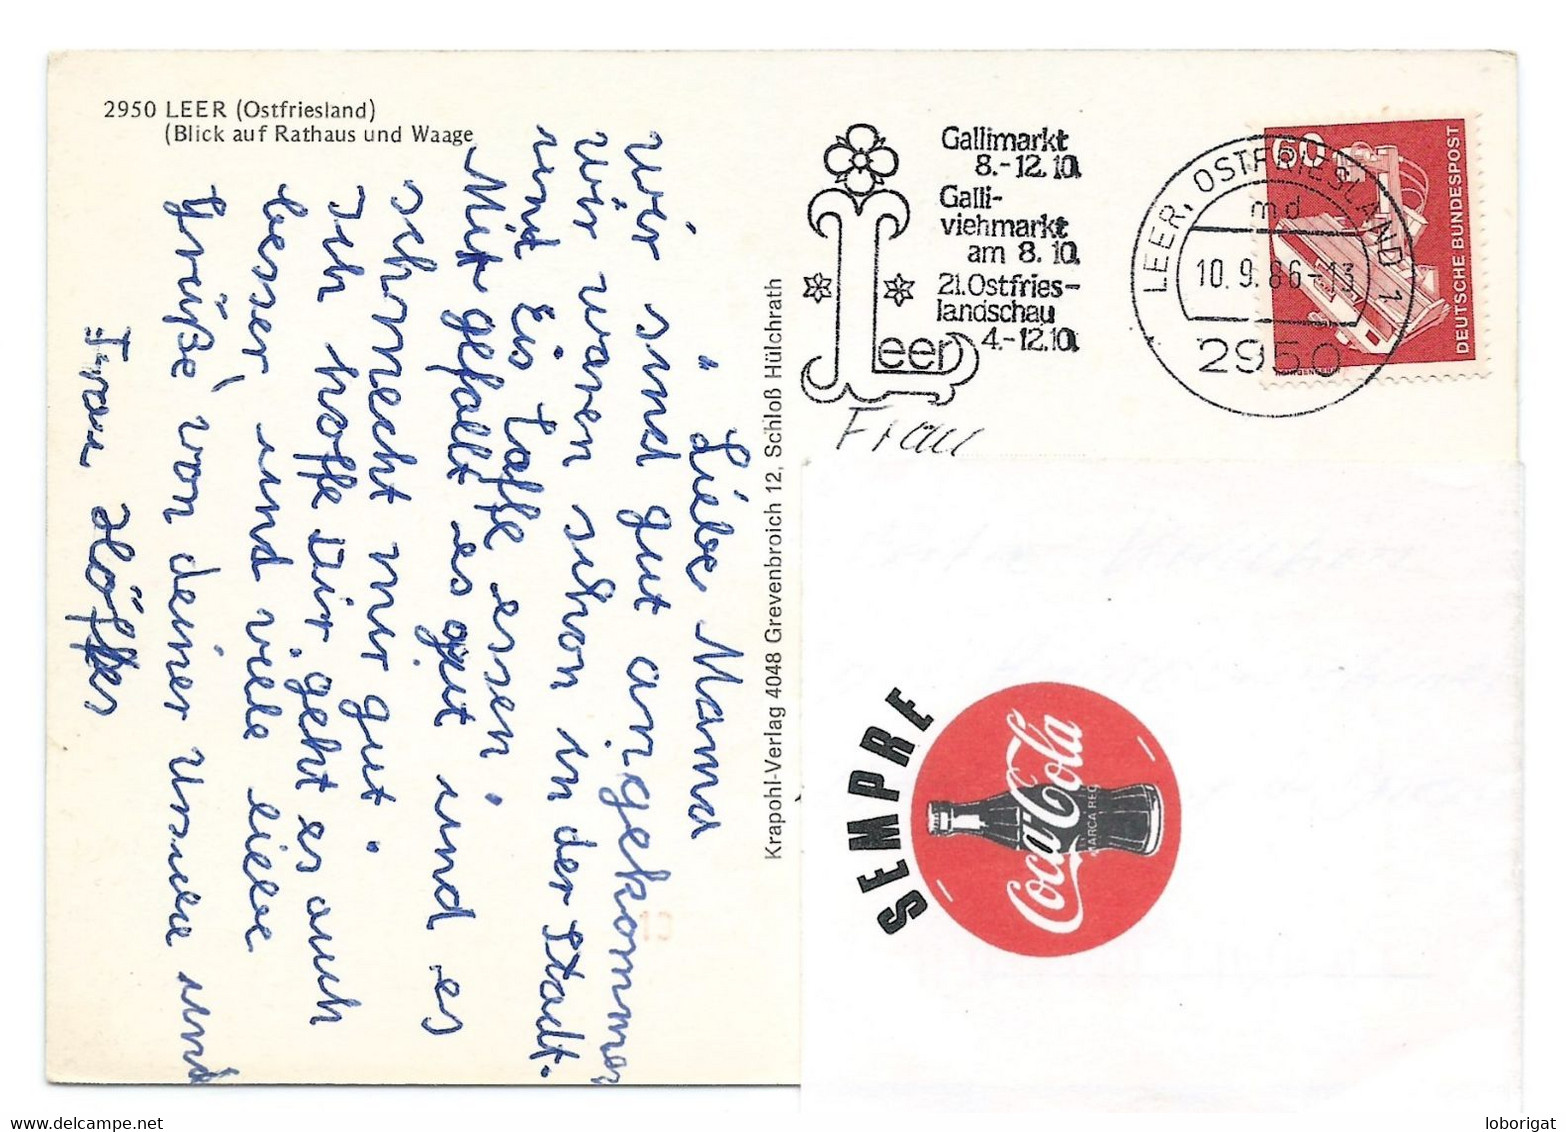 2950 LEER (Ostfriesland)
(Blick auf Rathaus und Waage
Liebe Mama
Wir sind gut angekommen
Wir waren schon in der Stadt.
und Eis Taffe essen.
Mir gefallt es gut und es
schmeckt mir gut.
Ich hoffe Dir geht es auch
besser, und viele liebe
Grüße von deiner Ursula und
Frau Höffkes
Krapohl-Verlag 4048 Grevenbroich 12, Schloß Hülchrath
Gallimarkt
8.-12.10.
Galli-
viehmarkt
am 8.10.
21.Ostfries-
landschau
4.-12.10.
Leer
LEER, OSTFRIESLAND 1
md
10.9.86-13
2950
60
DEUTSCHE BUNDESPOST
Frau
SEMPRE
Coca-Cola
MARCA REG
loborigat